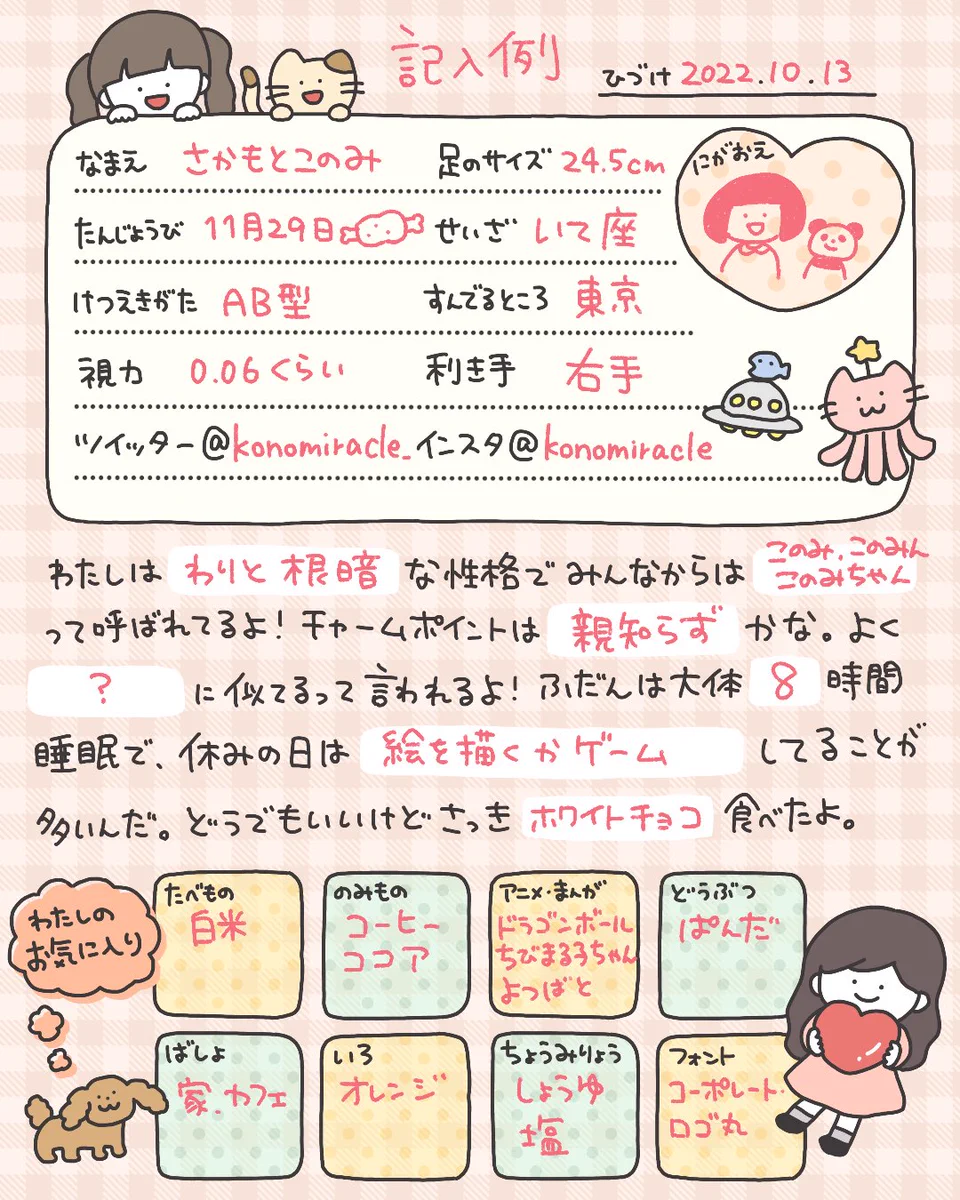 記入例
ひづけ 2022.10.13
なまえ さかもとこのみ 足のサイズ 24.5cm
にがおえ
たんじょうび 11月29日 せいざ いて座
けつえきがた AB型 すんでるところ 東京
視力 0.06くらい 利き手 右手
ツイッター@konomiracle_ インスタ@konomiracle
わたしは わりと根暗 な性格で みんなからは このみ、このみん
このみちゃん
って呼ばれてるよ! チャームポイントは 親知らず かな。よく
? に似てるって言われるよ! ふだんは大体 8 時間
睡眠で、休みの日は 絵を描くかゲーム してることが
多いんだ。どうでもいいけどさっき ホワイトチョコ 食べたよ。
わたしの
お気に入り
たべもの
白米
のみもの
コーヒー
ココア
アニメ・まんが
ドラゴンボール
ちびまる子ちゃん
よつばと
どうぶつ
ぱんだ
ばしょ
家、カフェ
いろ
オレンジ
ちょうみりょう
しょうゆ
塩
フォント
コーポレート・
ロゴ丸